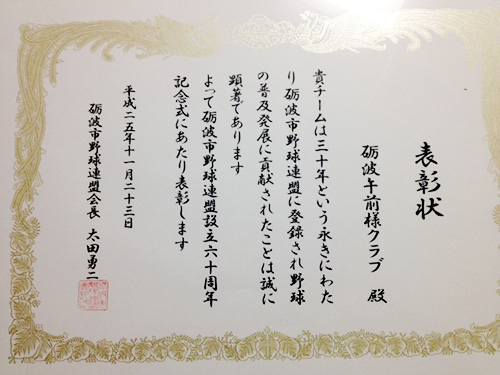 表彰状
砺波午前様クラブ 殿
貴チームは三十年という永きにわた
り砺波市野球連盟に登録され野球
の普及発展に貢献されたことは誠に
顕著であります
よって砺波市野球連盟設立六十周年
記念式にあたり表彰します
平成二五年十一月二十三日
砺波市野球連盟会長 太田勇二